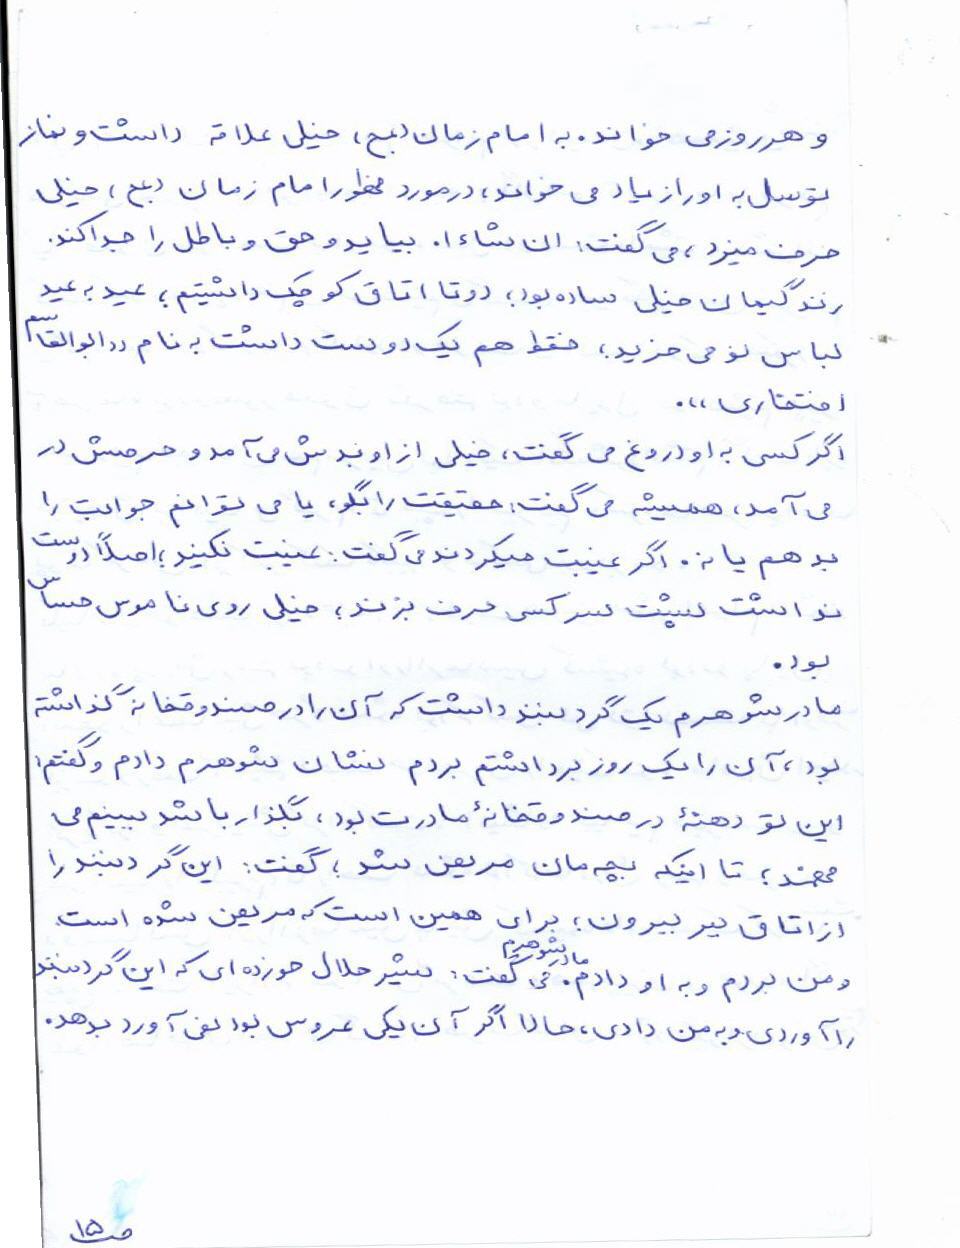 و هر روز می خواند. به امام زمان (عج)، خیلی علاقه داشت و نماز
توسل به او را زیاد می خواند، در مورد ظهور امام زمان (عج)، خیلی
حرف میزد، می گفت: ان شاء ا. بیاید و حق و باطل را جدا کند.
زندگیمان خیلی ساده بود؛ دو تا اتاق کوچک داشتیم؛ عید به عید
لباس نو می خرید؛ فقط هم یک دوست داشت به نام «ابوالقاسم
افتخاری».
اگر کسی به او دروغ می گفت، خیلی از او بدش می آمد و حرصش در
می آمد، همیشه می گفت: حقیقت را بگو، یا می توانم جوابت را
بدهم یا نه. اگر غیبت میکردند می گفت: غیبت نکنید؛ اصلاً دوست
نداشت پشت سر کسی حرف بزند؛ خیلی روی ناموس حساس
بود.
مادر شوهرم یک گردنبند داشت که آن را در صندوقخانه گذاشته
بود، آن را یک روز برداشتم بردم نشان شوهرم دادم و گفتم:
این تو دهنهٔ در صندوقخانهٔ مادرت بود، بگذار باشد ببینم می
فهمند؛ تا اینکه بچه مان مریض شد، گفت: این گردنبند را
از اتاق ببر بیرون؛ برای همین است که مریض شده است
و من بردم و به او دادم. مادر شوهرم می گفت: شیر حلال خورده ای که این گردنبند
را آوردی و به من دادی، حالا اگر آن یکی عروس بود نمی آورد بدهد.
ص ۱۵